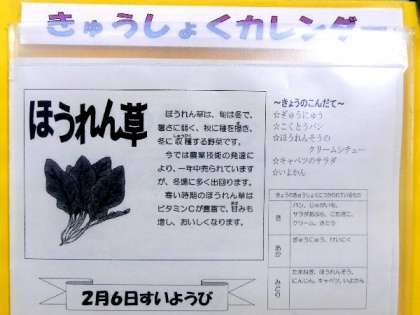 きゅうしょくカレンダー
ほうれん草
ほうれん草は、旬は冬で、
暑さに弱く、秋に種を播き、
冬に収穫する野菜です。
しゅうかく
今では農業技術の発達に
より、一年中売られています
が、冬場に多く出回ります。
寒い時期のほうれん草は
ビタミンCが豊富で、甘みも
増し、おいしくなります。
2月6日すいようび
～きょうのこんだて～
☆ぎゅうにゅう
☆こくとうパン
☆ほうれんそうの
クリームシチュー
☆キャベツのサラダ
☆いよかん
きょうのきゅうしょくにつかわれているもの
き
パン、じゃがいも、
サラダあぶら、こむぎこ、
クリーム、さとう
あか
ぎゅうにゅう、けいにく
みどり
たまねぎ、ほうれんそう、
にんじん、キャベツ、いよかん